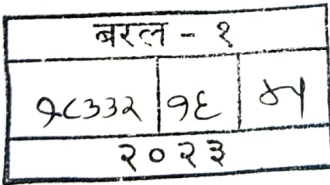 बरल - १
१८३३२ १६ ४५
२०२३